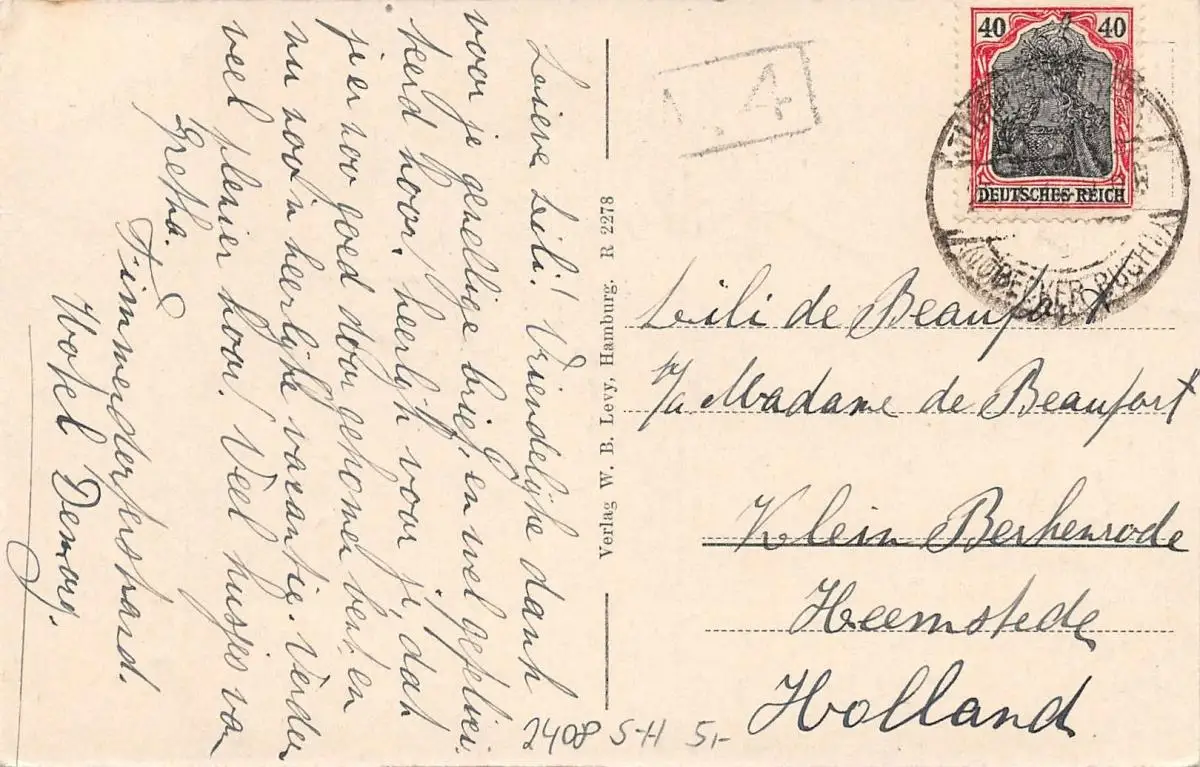 Lieve Lili! Vriendelijke dank
voor je gezellige brief, en wel gefelici-
teerd hoor. heerlijk voor je, dat
je er zoo goed door gekomen bent, en
nu zoo'n heerlijke vacantie. Verder
veel plezier hoor. Veel kusjes van
Gretha.
Timmendorferstrand.
Hotel
Verlag W. B. Levy, Hamburg. R 2278
40 40
DEUTSCHES REICH
4
Lili de Beaufort
p/a Madame de Beaufort
Klein Berkenrode
Heemstede
Holland
2408 S-H 5,-